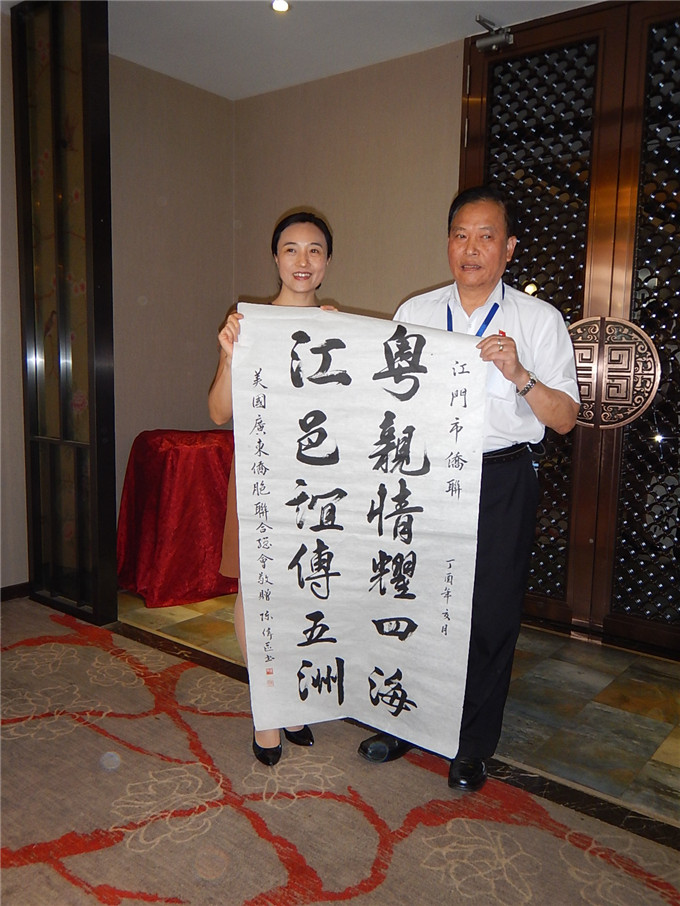 江門市僑聯
丁酉年亥月
粤親情耀四海
江邑誼傳五洲
美國廣東僑胞聯合總會敬贈